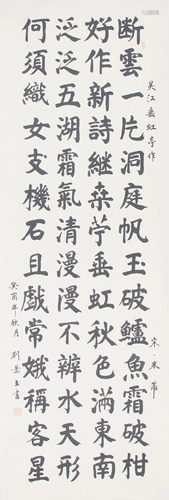 吳江垂虹亭作 宋·米芾
断雲一片洞庭帆玉破鱸魚霜破柑
好作新詩継桒苧垂虹秋色滿東南
泛泛五湖霜氣清漫漫不辨水天形
何須織女支機石且戲常娥稱客星
癸酉年秋月 劉書